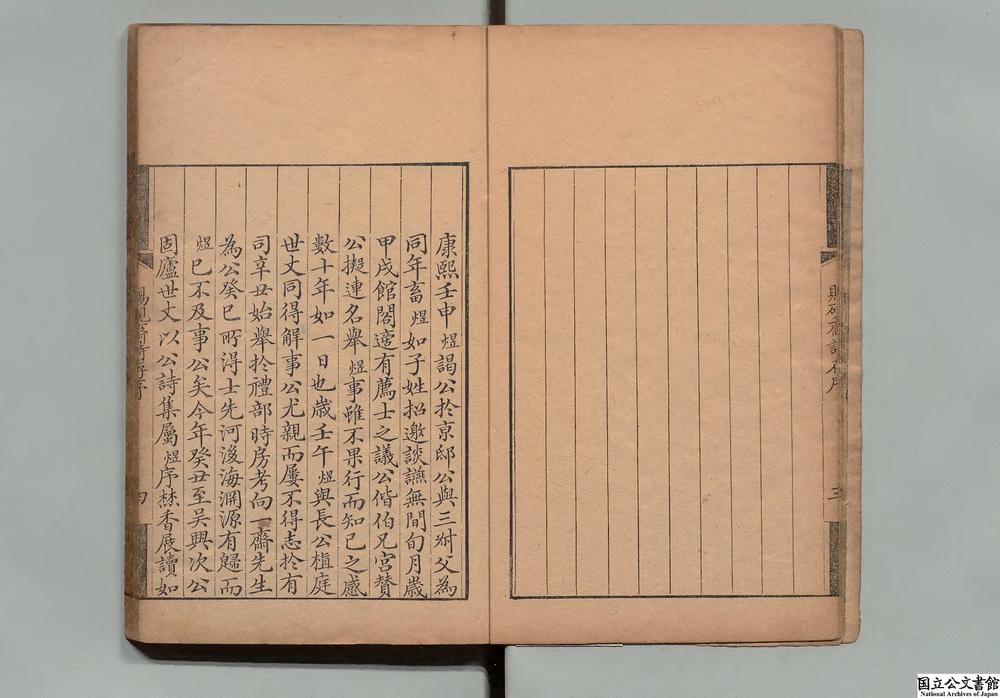 三
康熙壬申煜謁公扵京邸公與三叔父為
同年畜煜如子姓招邀談讌無間旬月歲
甲戌館閣適有薦士之議公偕伯兄宮贊
公擬連名舉煜事雖不果行而知己之感
數十年如一日也歲壬午煜與長公植庭
世丈同得解事公尤親而屢不得志扵有
司辛丑始舉扵禮部時房考向一齋先生
為公癸巳所得士先河後海淵源有歸而
煜已不及事公矣今年癸丑至吳興次公
固廬世丈以公詩集屬煜序焚香展讀如
四
国立公文書館
National Archives of Japan